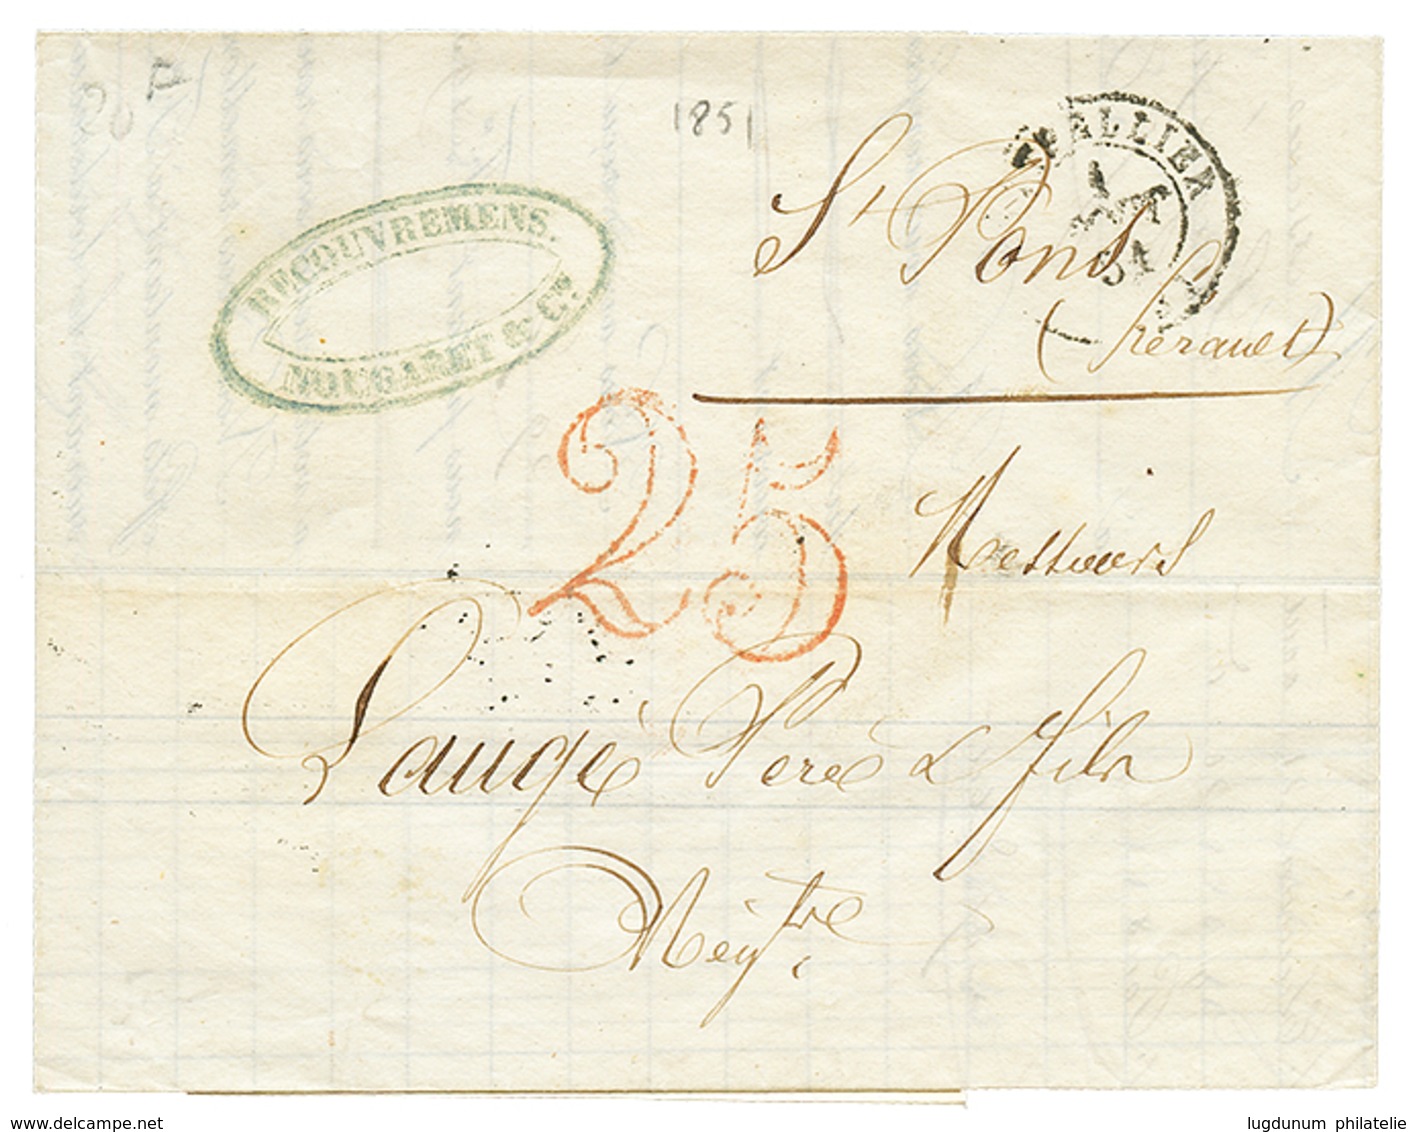 1851
RECOUVREMENS.
NOUGARET & Cie.
PELLIER
1
AOUT
51
St Pons
(hérault)
25
Messieurs
Laugé Père & fils
Nég
www.delcampe.net
lugdunum philatelie